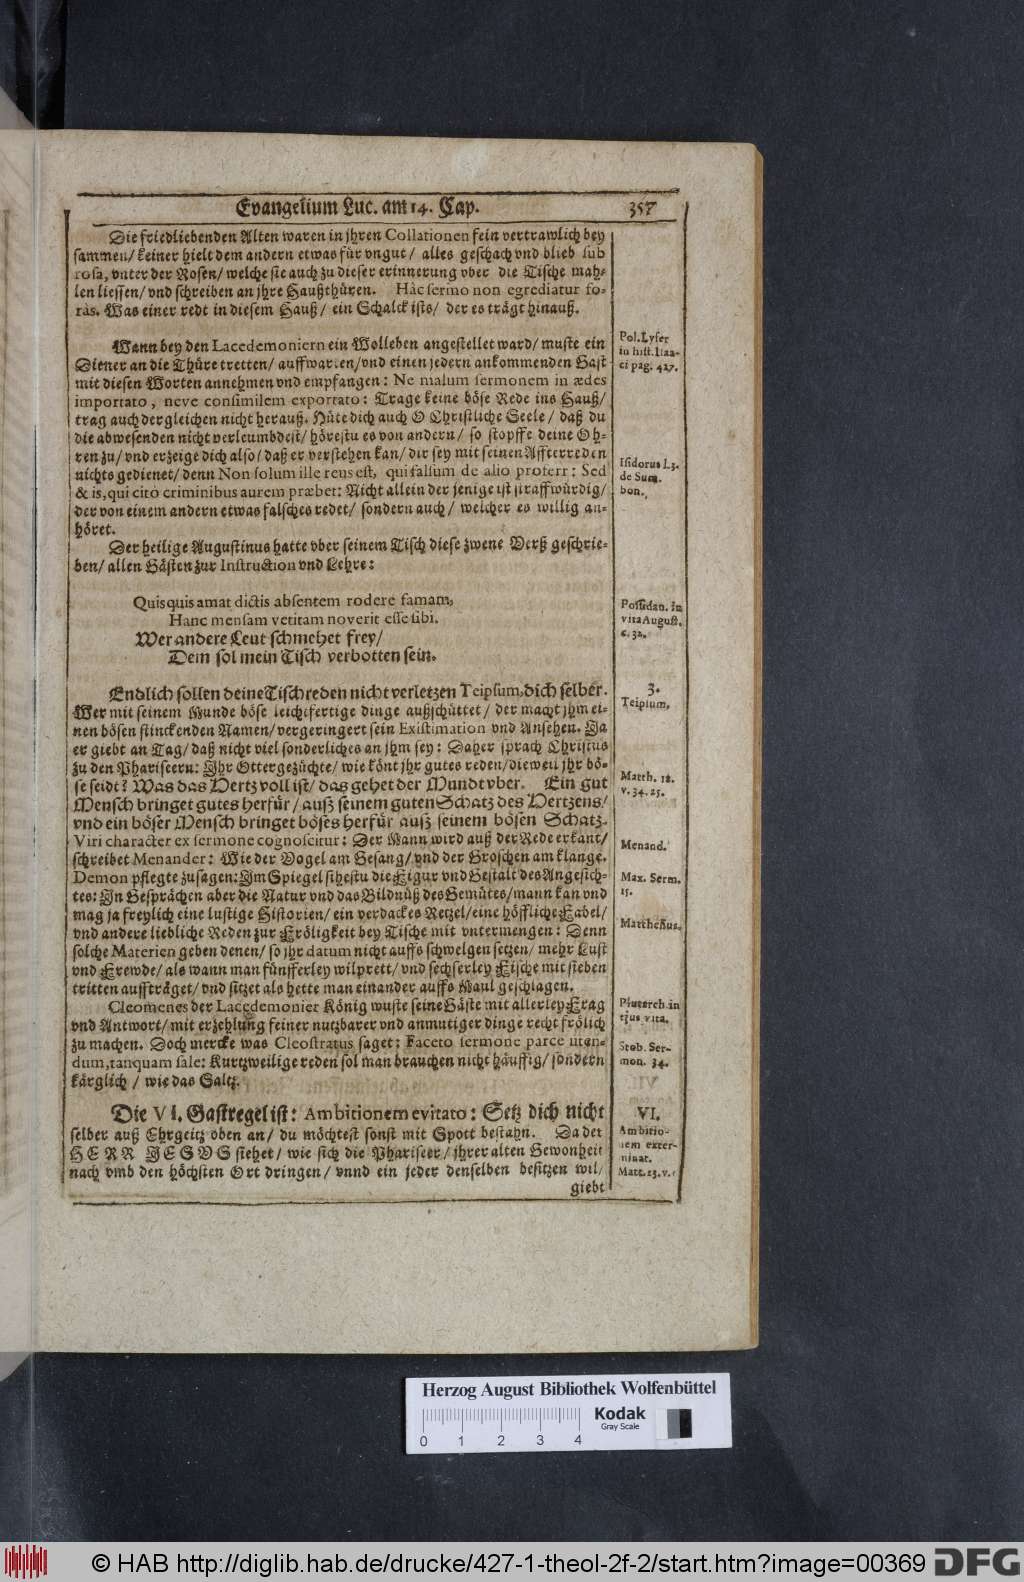 Evangelium Luc. am 14. Cap. 357
Die friedliebenden Alten waren in jhren Collationen fein vertrawlich bey
sammen/ keiner hielt dem andern etwas für vngut/ alles geschach vnd blieb sub
rosa, vnter der Rosen/ welche sie auch zu dieser erinnerung vber die Tische mah-
len liessen/ vnd schreiben an jhre Haußthüren. Hâc sermo non egrediatur fo-
ràs. Was einer redt in diesem Hauß/ ein Schalck ists/ der es trägt hinauß.
Wann bey den Lacedemoniern ein Wolleben angestellet ward/ muste ein
Diener an die Thüre tretten/ auffwarten/ vnd einen jedern ankommenden Gast
mit diesen Worten annehmen vnd empfangen: Ne malum sermonem in ædes
importato, neve consimilem exportato: Trage keine böse Rede ins Hauß/
trag auch dergleichen nicht herauß. Hüte dich auch O Christliche Seele/ daß du
die abwesenden nicht verleumbdest/ hörestu es von andern/ so stopffe deine Oh-
ren zu/ vnd erzeige dich also/ daß er verstehen kan/ dir sey mit seinen Affterreden
nichts gedienet/ denn Non solum ille reus est, qui falsum de alio profert: Sed
& is, qui cito criminibus aurem præbet: Nicht allein der jenige ist straffwürdig/
der von einem andern etwas falsches redet/ sondern auch/ welcher es willig an-
höret.
Der heilige Augustinus hatte vber seinem Tisch diese zwene Verß geschrie-
ben/ allen Gästen zur Instruction vnd Lehre:
Quisquis amat dictis absentem rodere famam,
Hanc mensam vetitam noverit esse sibi.
Wer andere Leut schmehet frey/
Dem sol mein Tisch verbotten sein.
Endlich sollen deine Tischreden nicht verletzen Teipsum, dich selber.
Wer mit seinem Munde böse leichtfertige dinge außschüttet/ der macht jhm ei-
nen bösen stinckenden Namen/ vergeringert sein Existimation vnd Ansehen. Ja
er giebt an Tag/ daß nicht viel sonderliches an jhm sey: Daher sprach Christus
zu den Phariseern: Jhr Ottergezüchte/ wie könt jhr gutes reden/ dieweil jhr bö-
se seidt? Was das Hertz voll ist/ das gehet der Mundt vber. Ein gut
Mensch bringet gutes herfür/ auß seinem guten Schatz des Hertzens/
vnd ein böser Mensch bringet böses herfür auß seinem bösen Schatz.
Viri character ex sermone cognoscitur: Der Mann wird auß der Rede erkant/
schreibet Menander: Wie der Vogel am Gesang/ vnd der Groschen am klange.
Demon pflegte zu sagen: Im Spiegel sihestu die Figur vnd Gestalt des Angesich-
tes: In Gesprächen aber die Natur vnd das Bildnüß des Gemütes/ mann kan vnd
mag ja freylich eine lustige Historien/ ein verdackes Retzel/ eine höffliche Fabel/
vnd andere liebliche Reden zur Fröligkeit bey Tische mit vntermengen: Denn
solche Materien geben denen/ so jhr datum nicht auffs schwelgen setzen/ mehr Lust
vnd Frewde/ als wann man fünfferley wilprett/ vnd sechserley Fische mit sieben
tritten auffträget/ vnd sitzet als hette man einander auffs Maul geschlagen.
Cleomenes der Lacedemonier König wuste seine Gäste mit allerley Frag
vnd Antwort/ mit erzehlung feiner nutzbarer vnd anmutiger dinge recht frölich
zu machen. Doch mercke was Cleostratus saget: Faceto sermone parce uten-
dum, tanquam sale: Kurtzweilige reden sol man brauchen nicht häuffig/ sondern
kärglich/ wie das Saltz.
Die VI. Gastregel ist: Ambitionem evitato: Setz dich nicht
selber auß Ehrgeitz oben an/ du möchtest sonst mit Spott bestahn. Da der
HERR JESVS siehet/ wie sich die Phariseer/ jhrer alten Gewonheit
nach vmb den höchsten Ort dringen/ vnnd ein jeder denselben besitzen wil/
giebt
Pol. Lyser
in hist. Isaa-
ci pag. 427.
Isidorus l. 3.
de Sum.
bon.
Possidan. in
vita August.
c. 32.
3.
Teipsum.
Matth. 12.
v. 34. 25.
Menand.
Max. Serm.
15.
Matthesius.
Plutarch. in
ejus vita.
Stob. Ser-
mon. 34.
VI.
Ambitio-
nem exter-
minat.
Matt. 23. v. 6
Herzog August Bibliothek Wolfenbüttel
Kodak
Gray Scale
0 1 2 3 4
© HAB http://diglib.hab.de/drucke/427-1-theol-2f-2/start.htm?image=00369 DFG